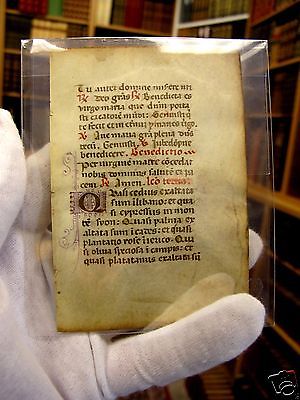 Tu autem domine miserere nr̄i
℟ Deo grās ℟ Benedicta es
virgo maria que dnm̄ porta
sti creatorē mūdi: Genuisti q̄
te fecit et in eternū ꝑmanes ꝟgo.
℣ Aue maria gracia plena dn̄s
tecū. Genuisti ℣ Iube dopne
benedicere. Benedictio.
Per virginē matrē cōcedat
nobis dominus salutē et pa
cem ℟ Amen. lcō tercia.
Quasi cedrus exaltata
sum ī libano: et qua
si cypressus in mon
te sion: Quasi palma ex
altata sum ī cades: et quasi
plantatio rose ī ierico: Quasi
si oliua speciosa ī campis: et
quasi platanus exaltata sū